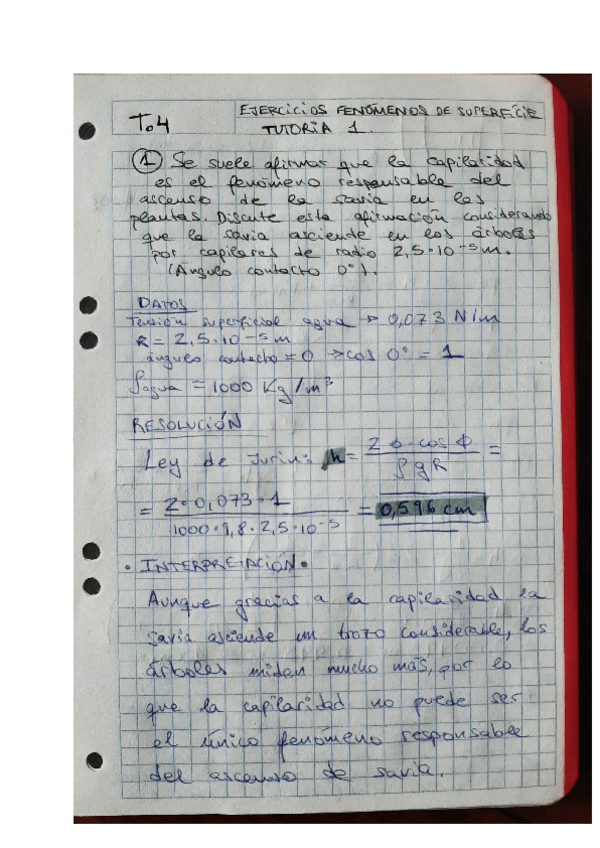 T.4
EJERCICIOS FENÓMENOS DE SUPERFICIE
TUTORIA 1.
① Se suele afirmar que la capilaridad
es el fenómeno responsable del
ascenso de la savia en las
plantas. Discute esta afirmación considerando
que la savia asciende en los árboles
por capilares de radio 2,5·10⁻⁵ m.
(Ángulo contacto 0°).
DATOS
Tensión superficial agua → 0,073 N/m
R = 2,5·10⁻⁵ m
ángulo contacto = 0 → cos 0° = 1
ρagua = 1000 Kg/m³
RESOLUCIÓN
Ley de Jurin: h = 2 σ · cos ϕ / ρ g R =
= 2·0,073·1 / 1000·9,8·2,5·10⁻⁵ = 0,596 cm
· INTERPRETACIÓN·
Aunque gracias a la capilaridad la
savia asciende un trozo considerable, los
árboles miden mucho más, por lo
que la capilaridad no puede ser
el único fenómeno responsable
del ascenso de savia.